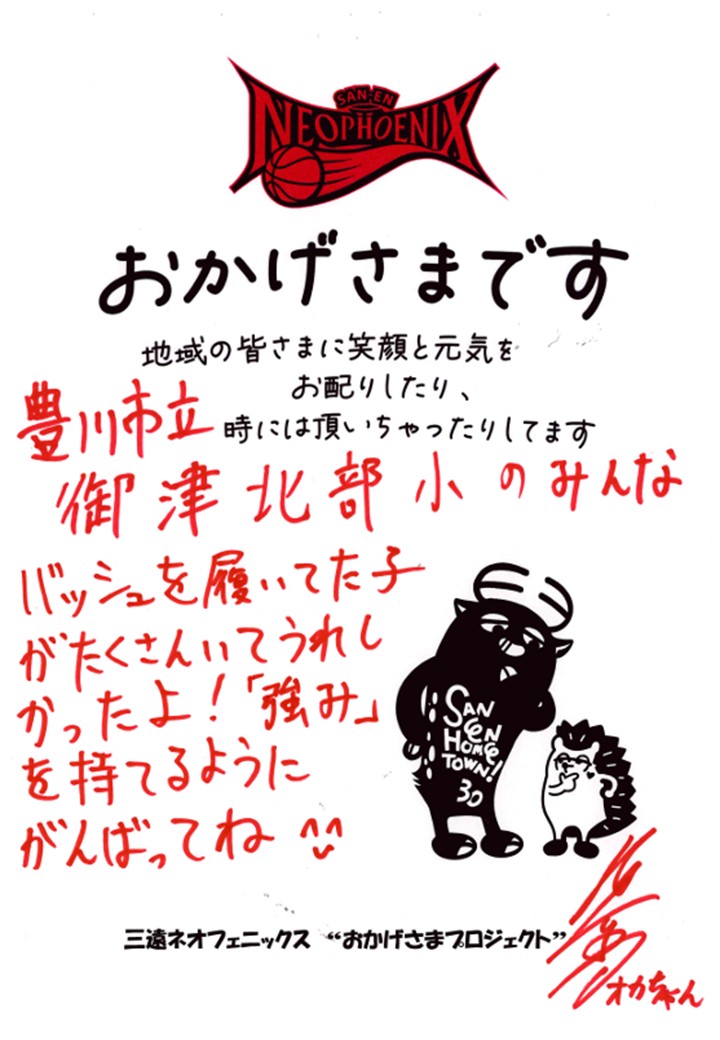 SAN-EN
NEOPHOENIX
おかげさまです
地域の皆さまに笑顔と元気を
お配りしたり、
時には頂いちゃったりしてます
豊川市立
御津北部小のみんな
バッシュを履いてた子
がたくさんいてうれし
かったよ!「強み」
を持てるように
がんばってね
SAN
EN
HOME
TOWN!
30
三遠ネオフェニックス “おかげさまプロジェクト”
オカちゃん